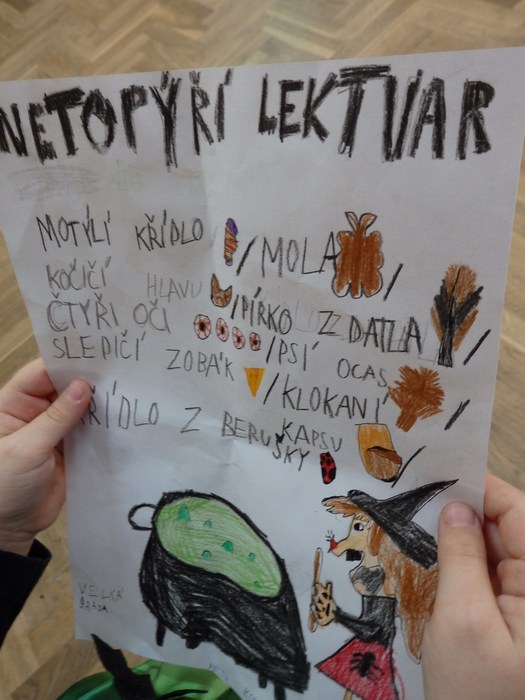 NETOPÝŘÍ LEKTVAR
MOTÝLÍ KŘÍDLO / MOLA /
KOČIČÍ HLAVU / PÍRKO Z DATLA /
ČTYŘI OČI / PSÍ OCAS /
SLEPIČÍ ZOBÁK / KLOKANÍ KAPSU /
KŘÍDLO Z BERUŠKY
VELKÁ
BRADA